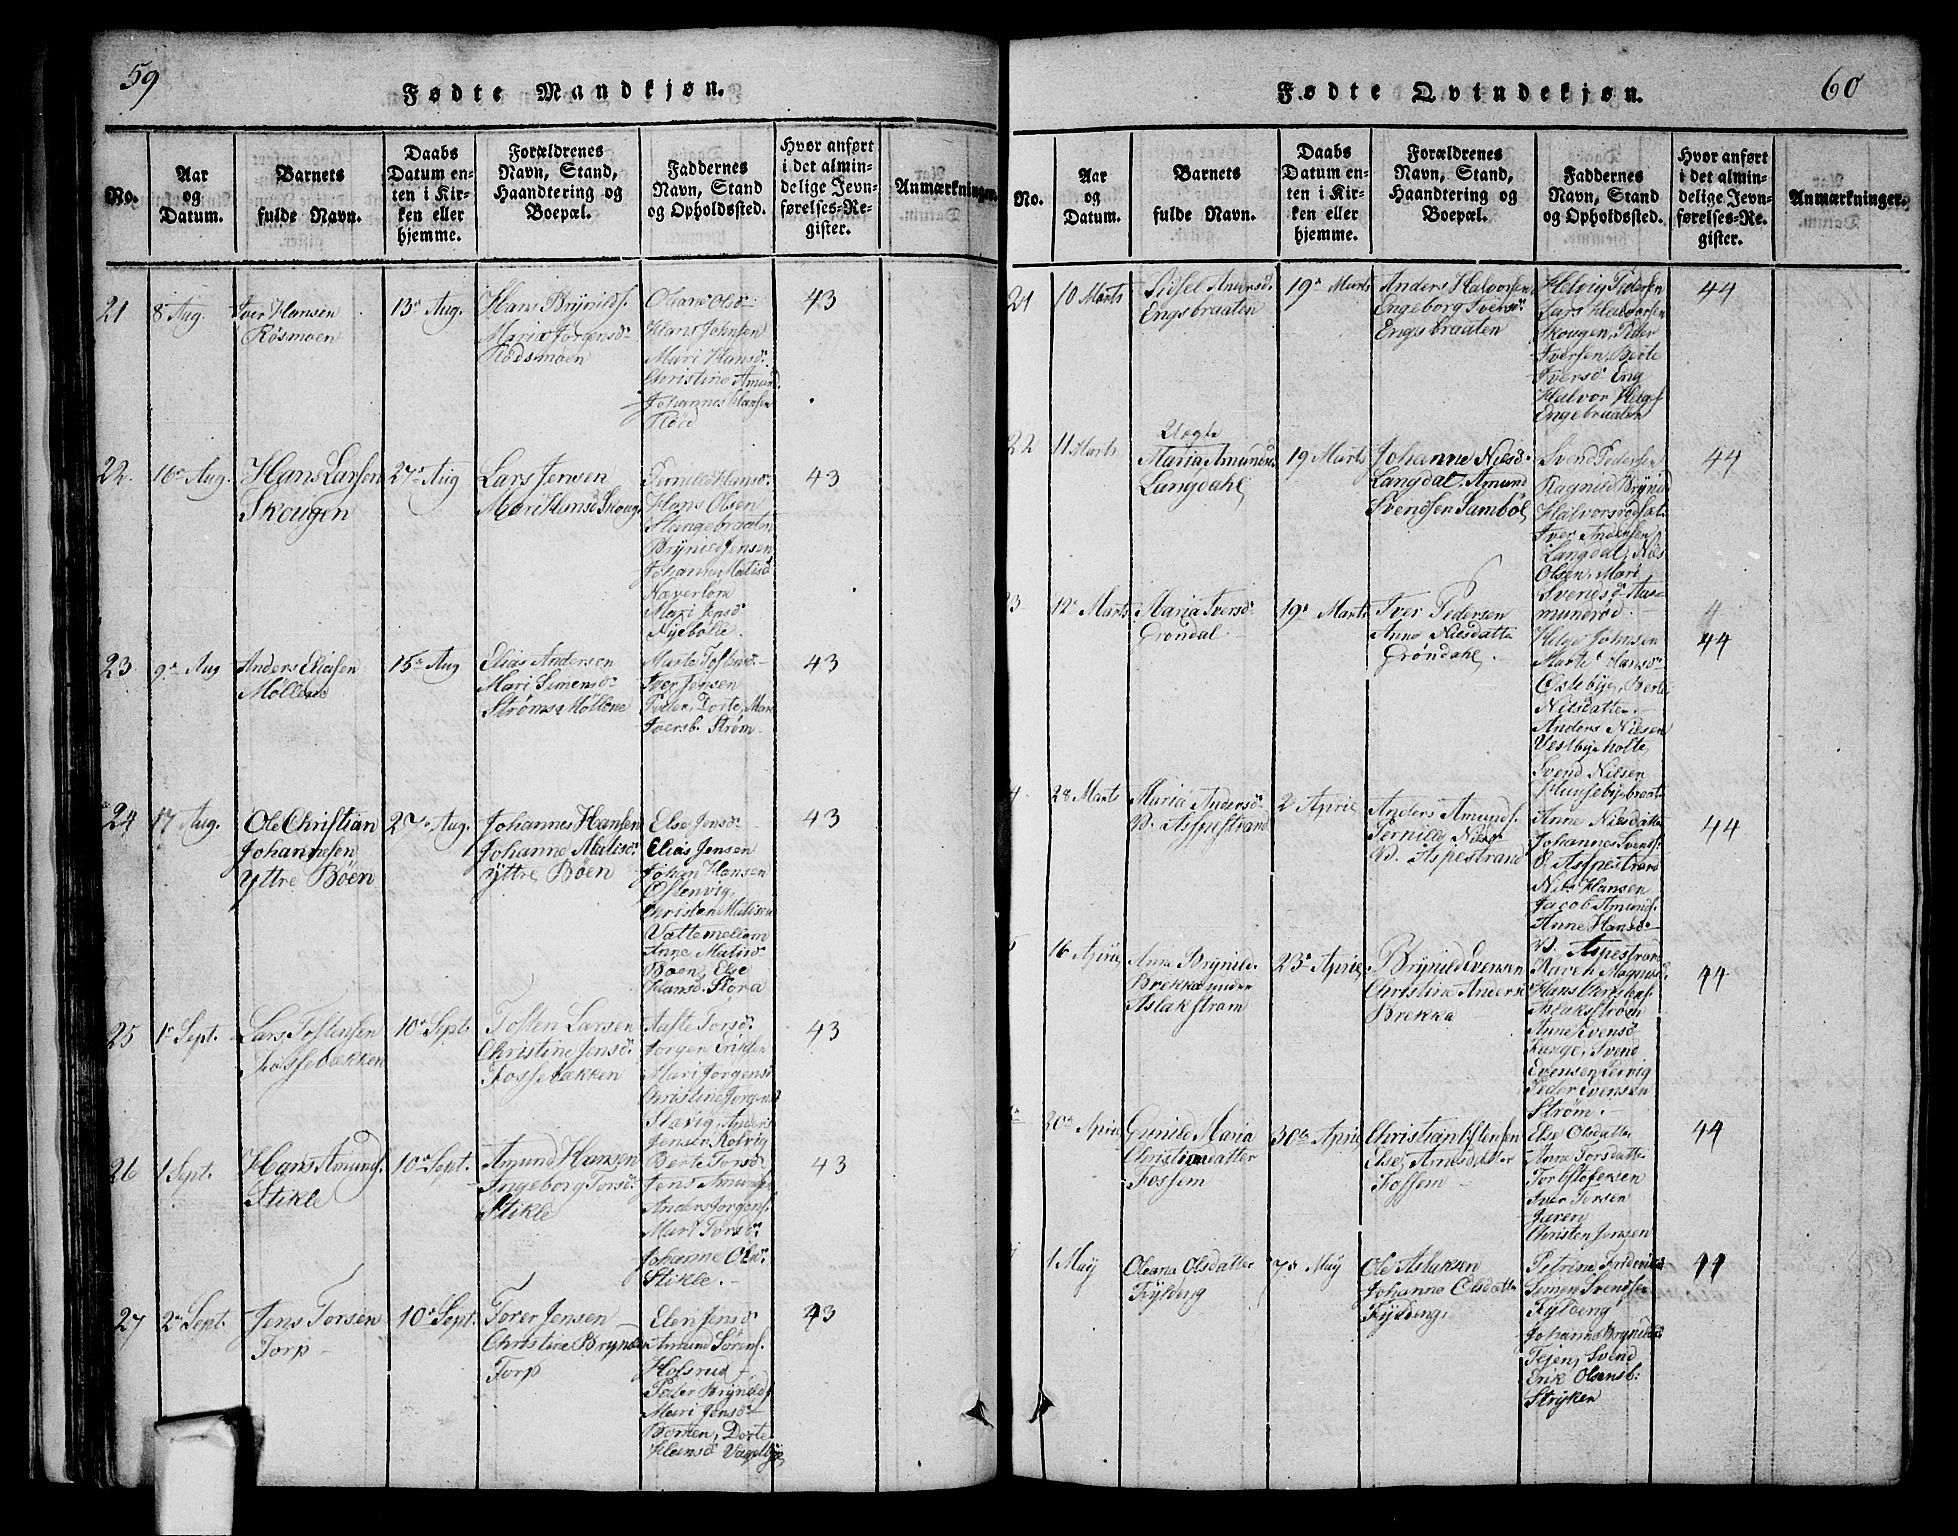 59
Fødte Mandkjøn.
No.
Aar
og
Datum.
Barnets
fulde Navn.
Daabs
Datum en-
ten i Kir-
ken eller
hjemme.
Forældrenes
Navn, Stand,
Haandtering og
Boepæl.
Faddernes
Navn, Stand
og Opholdssted.
Hvor anført
i det almin-
delige Jevn-
førelses-Re-
gister.
Anmærkninger.
21
8 Aug.
Iver Hansen
Rösmoen
13de Aug.
Hans Brynilds.
Maria Jorgensd.
Rödsmoen
Hans Johnsen
Mari Hansd.
Christine Amund
Johannes Hansen
Röd
43
22.
16de Aug.
Hans Larsen
Skougen
27de Aug
Lars Jensen
Mari Hansd Skoug.
Pernild Hansd.
Hans Olsen
Hangebraaten
Brynild Jensen
Johanne Matisd
Kaverlöm
Mari Jensd
Nyebölle.
43
23
9de Aug
Anders Eliasen
Möllene
15de Aug
Elias Andersen
Mari Simensd
Ströms Möllene
Marte Tostensd.
Iver Jensen
Peder, Dorte, Mari
Iversb. Ström.
43
24
17 Aug.
Ole Christian
Johannesen
Yttre Böen
27de Aug.
Johannes Hansen
Johanne Matisd.
Yttre Böen
Else Jensd.
Elias Jensen
Johan Hansen
Östenvig,
Christen Matisen
Vattemeliem
Anne Matisd
Boen, Else
Hansd. Flora
43
25
1de Sept.
Lars Tostensen
Fossebakken
10de Sept.
Tosten Larsen
Christine Jensd.
Fossebakken
Aaste Torsd.
Jorgen Eriksen
Mari Jorgensd
Christine Jorgensd
Slavig, Anders
Jensen Kolvig
43
26
1 Sept.
Hans Amunds.
Stikle
10de Sept.
Amund Hansen
Ingeborg Torsd.
Stikle
Berte Torsd.
Jens Amundsen
Anders Jorgens.
Mari Torsd.
Johanne Olsd.
Stikle.
43
27
2de Sept.
Jens Torsen
Torp
10de Sept.
Torer Jensen
Christine Brynilds
Torp
Eleri Jensd
Amund Sörens.
Holsrud
Peder Brynilds
Mari Jensd.
Bomen, Dorte
Hansd Vagelbye
43
60
Fødte Qvindekjøn.
No.
Aar
og
Datum.
Barnets
fulde Navn.
Daabs
Datum en-
ten i Kir-
ken eller
hjemme.
Forældrenes
Navn, Stand,
Haandtering og
Boepæl.
Faddernes
Navn, Stand
og Opholdssted.
Hvor anført
i det almin-
delige Jevn-
førelses-Re-
gister.
Anmærkninger.
21
10 Marts
Sidsel Andersd.
Engsbraaten
19de Marts
Anders Halvorsen
Engeborg Iversd.
Engsbraaten
Helvig Pedersen
Lars Halvorsen
Skougen, Peder
Iversen, Berte
Iversd Eng
Halvor Helges
Engebraaten
44
22
11 Marts
Uegte
Maria Amundsd.
Langdahl
19 Marts
Johanne Nilsd.
Langdal, Amund
Svendsen Samböl
Svend Pedersen
Ragnild Brynild
Halvorsrödsæt.
Iver Andersen
Langdal, Nils
Olsen, Mari
Svendsd Aas-
munderöd.
44
23
12te Marts
Maria Iversd.
Gröndal
19de Marts
Iver Pedersen
Anne Nilsdatte
Gröndahl.
Helge Johnsen
Marte Hansd.
Östebye, Berte
Nilsdatter.
Anders Nilsen
Vestbyeholte
44
28 Marts
Maria Andersd.
N. Aspestrand
2 April
Anders Amunds.
Pernille Nilsd.
N. Aspestrand
Svend Nilsen
Huusebyebraat.
Anne Nilsdatte
Johannes Svends
N. Aspestrand
Nils Hansen
Jacob Amunds.
Anne Hansd
N. Aspestrand
44
16 April
Anne Brynilds.
Brekka under
Aslakstrøm
23de April
Brynild Evensen
Christine Andersd
Brekka
Karen Magnusd.
Hans Christens.
Aslakstrøm
Anne Evensd
Lange, Svend
Evensen Lervig
Peder Evensen
Strøm.
44
30te April
Gunild Maria
Christiansdatter
Fossem
30te April
Christian Ostensen
Else Arnesdatter
Fossem
Else Olsdatter
Anne Torsdatte
Torb Stofersen
Iver Torsen
Jaren
Christen Jensen
44
1 May
Oleana Olsdatter
Fylding
7de May
Ole Aslaksen
Johanne Olsdatter
Fylding,
Petrine Frideriksd.
Simen Svendsen
Fylding
Johannes Brynilds.
Tejen, Svend
Erik Olsensb.
Stryken
44